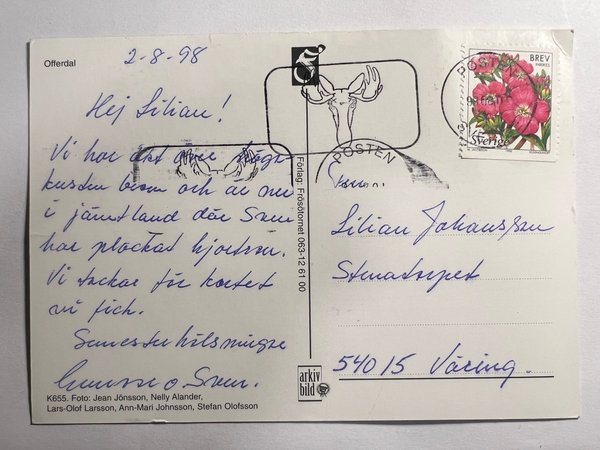 Offerdal
2-8-98
Hej Lilian!
Vi har åkt över Höga
kusten broen och är nu
i jämtland där Sven
har plockat hjortron.
Vi tackar för kortet
vi fick.
Semester hälsningar
o Sven.
K655. Foto: Jean Jönsson, Nelly Alander,
Lars-Olof Larsson, Ann-Mari Johnsson, Stefan Olofsson
Förlag: Frösötornet 063-12 61 00
arkiv
bild
POSTEN
POSTEN
BREV
INRIKES
Sverige
Fam.
Lilian Johansson
Stenatorpet
54015 Väring